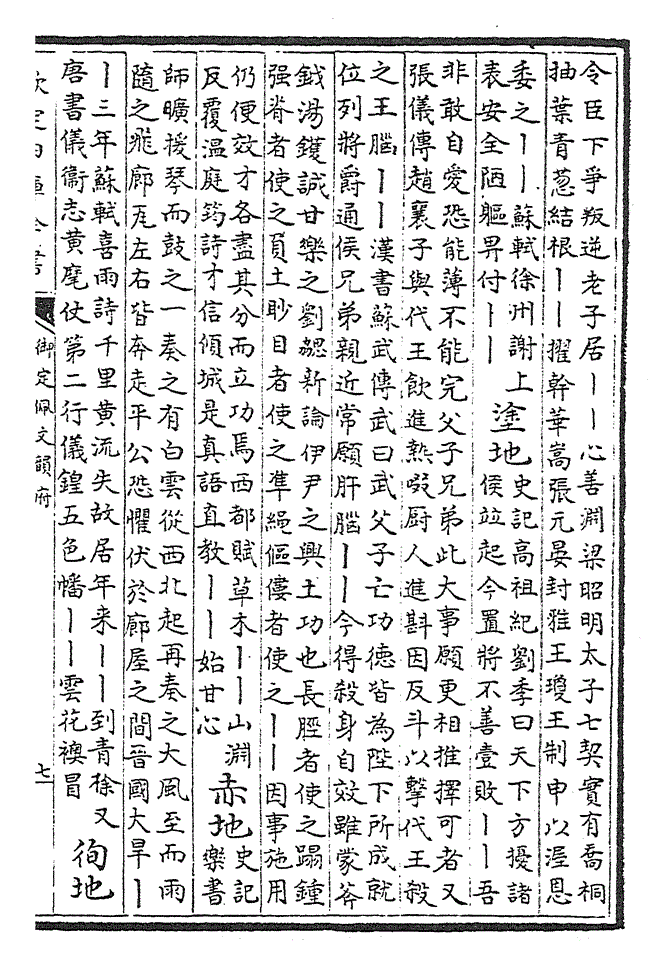 令臣下爭叛逆老子居丨丨心善淵梁昭明太子七契實有喬桐
抽葉青葱結根丨丨擢幹華嵩張元晏封雅王瓊王制申以渥恩
委之丨丨蘇軾徐州謝上
表安全陋軀畀付丨丨
塗地
史記高祖紀劉季曰天下方擾諸
侯竝起今置將不善壹敗丨丨吾
非敢自愛恐能薄不能完父子兄弟此大事願更相推擇可者又
張儀傳趙襄子與代王飲進熱啜厨人進斟因反斗以擊代王殺
之王腦丨丨漢書蘇武傳武曰武父子亡功德皆為陛下所成就
位列將爵通侯兄弟親近常願肝腦丨丨今得殺身自效雖蒙斧
鉞湯鑊誠甘樂之劉勰新論伊尹之興土功也長脛者使之蹋鍾
强脊者使之負土眇目者使之準繩傴僂者使之丨丨因事施用
仍便效才各盡其分而立功焉西都賦草木丨丨山淵
反覆溫庭筠詩才信傾城是真語直教丨丨始甘心
赤地
史記
樂書
師曠援琴而鼓之一奏之有白雲從西北起再奏之大風至而雨
隨之飛廊瓦左右皆奔走平公恐懼伏於廊屋之間晉國大旱丨
丨三年蘇軾喜雨詩千里黄流失故居年来丨丨到青徐又
唐書儀衛志黄麾仗第二行儀鍠五色幡丨丨雲花襖冒
徇地
欽定四庫全書
御定佩文韻府
七